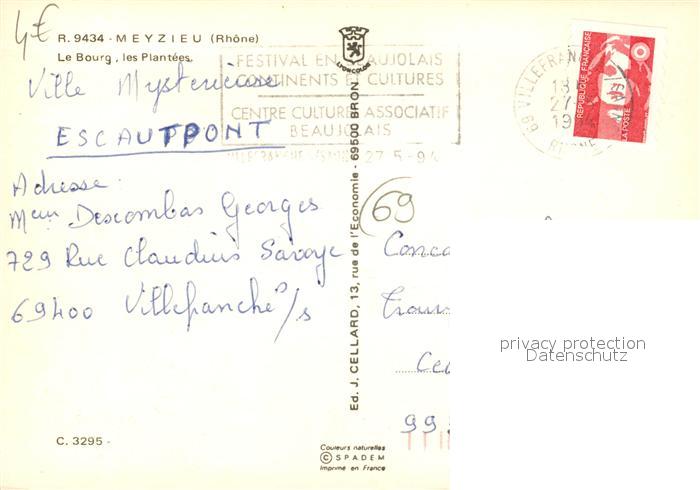 4€
R. 9434 - MEYZIEU (Rhône)
Le Bourg, les Plantées
Ville Mysterieuse
ESCAUTPONT
LYONCOLOR
FESTIVAL EN BEAUJOLAIS
CONTINENTS ET CULTURES
CENTRE CULTUREL ASSOCIATIF
BEAUJOLAIS
27-5-94
69 VILLEFRAN
18
27
19
RHONE
REPUBLIQUE FRANÇAISE
LA POSTE
Adresse:
Descombas Georges
729 Rue Claudius Savoye
69400 Villefranche s/s
69
Ed. J. CELLARD, 13, rue de l'Economie - 69500 BRON
Conco
Trouv
Ce
99
privacy protection
Datenschutz
C. 3295 -
Couleurs naturelles
© SPADEM
Imprimé en France